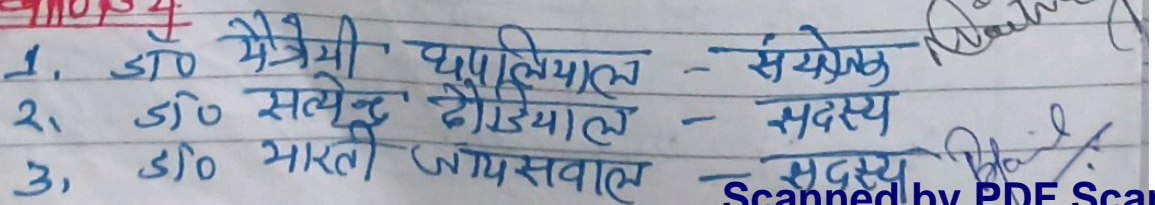 1. डॉ० मैत्रेयी थपलियाल - संयोजक
2. डॉ० सत्येन्द्र ढौंडियाल - सदस्य
3. डॉ० भारती जायसवाल - सदस्य
Scanned by PDF Scan